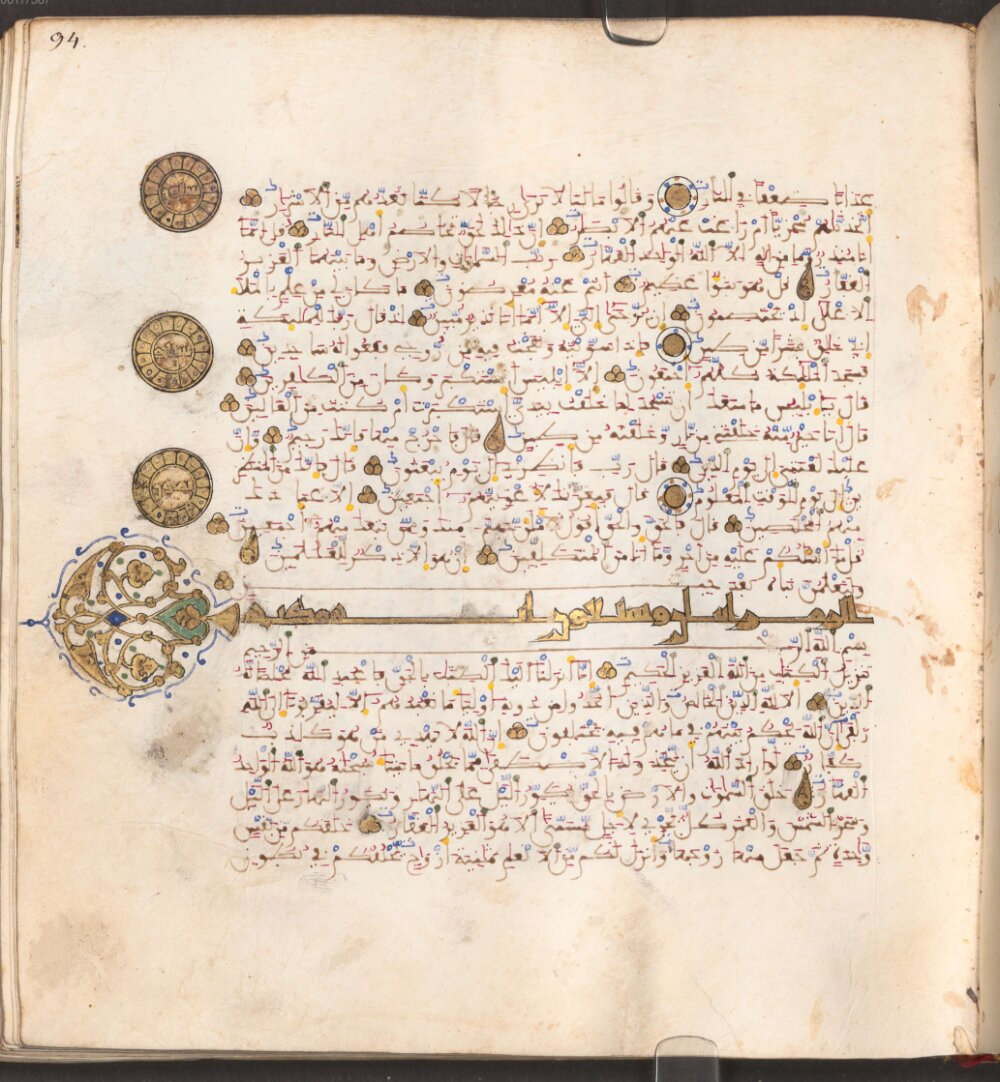 94.
عذابا ضعفا في النار وقالوا ما لنا لا نرى رجالا كنا نعدهم من الاشرار
اتخذنهم سخريا ام زاغت عنهم الابصار ان ذلك لحق تخاصم اهل النار قل انما
انا منذر وما من اله الا الله الواحد القهار رب السموات والارض وما بينهما العزيز
الغفار قل هو نبؤا عظيم انتم عنه معرضون ما كان لي من علم بالملا
الاعلى اذ يختصمون ان يوحى الي الا انما انا نذير مبين اذ قال ربك للملئكة
اني خلق بشرا من طين فاذا سويته ونفخت فيه من روحي فقعوا له سجدين
فسجد الملئكة كلهم اجمعون الا ابليس استكبر وكان من الكفرين
قال يابليس ما منعك ان تسجد لما خلقت بيدي استكبرت ام كنت من العالين
قال انا خير منه خلقتني من نار وخلقته من طين قال فاخرج منها فانك رجيم وان
عليك لعنتي الى يوم الدين قال رب فانظرني الى يوم يبعثون قال فانك من المنظر
ين الى يوم الوقت المعلوم قال فبعزتك لاغوينهم اجمعين الا عبادك
منهم المخلصين قال فالحق والحق اقول لاملان جهنم منك وممن تبعك منهم اجمعين
قل ما اسئلكم عليه من اجر وما انا من المتكلفين ان هو الا ذكر للعلمين
ولتعلمن نباه بعد حين
الزمر مكية
بسم الله الرحمن الرحيم
تنزيل الكتب من الله العزيز الحكيم انا انزلنا اليك الكتب بالحق فاعبد الله مخلصا له
الدين الا لله الدين الخالص والذين اتخذوا من دونه اولياء ما نعبدهم الا ليقربونا الى الله
زلفى ان الله يحكم بينهم في ما هم فيه يختلفون ان الله لا يهدي من هو كذب
كفار لو اراد الله ان يتخذ ولدا لاصطفى مما يخلق ما يشاء سبحنه هو الله الوحد
القهار خلق السموت والارض بالحق يكور اليل على النهار ويكور النهار على اليل
وسخر الشمس والقمر كل يجري لاجل مسمى الا هو العزيز الغفار خلقكم من نفس
وحدة ثم جعل منها زوجها وانزل لكم من الانعم ثمنية ازوج يخلقكم في بطون